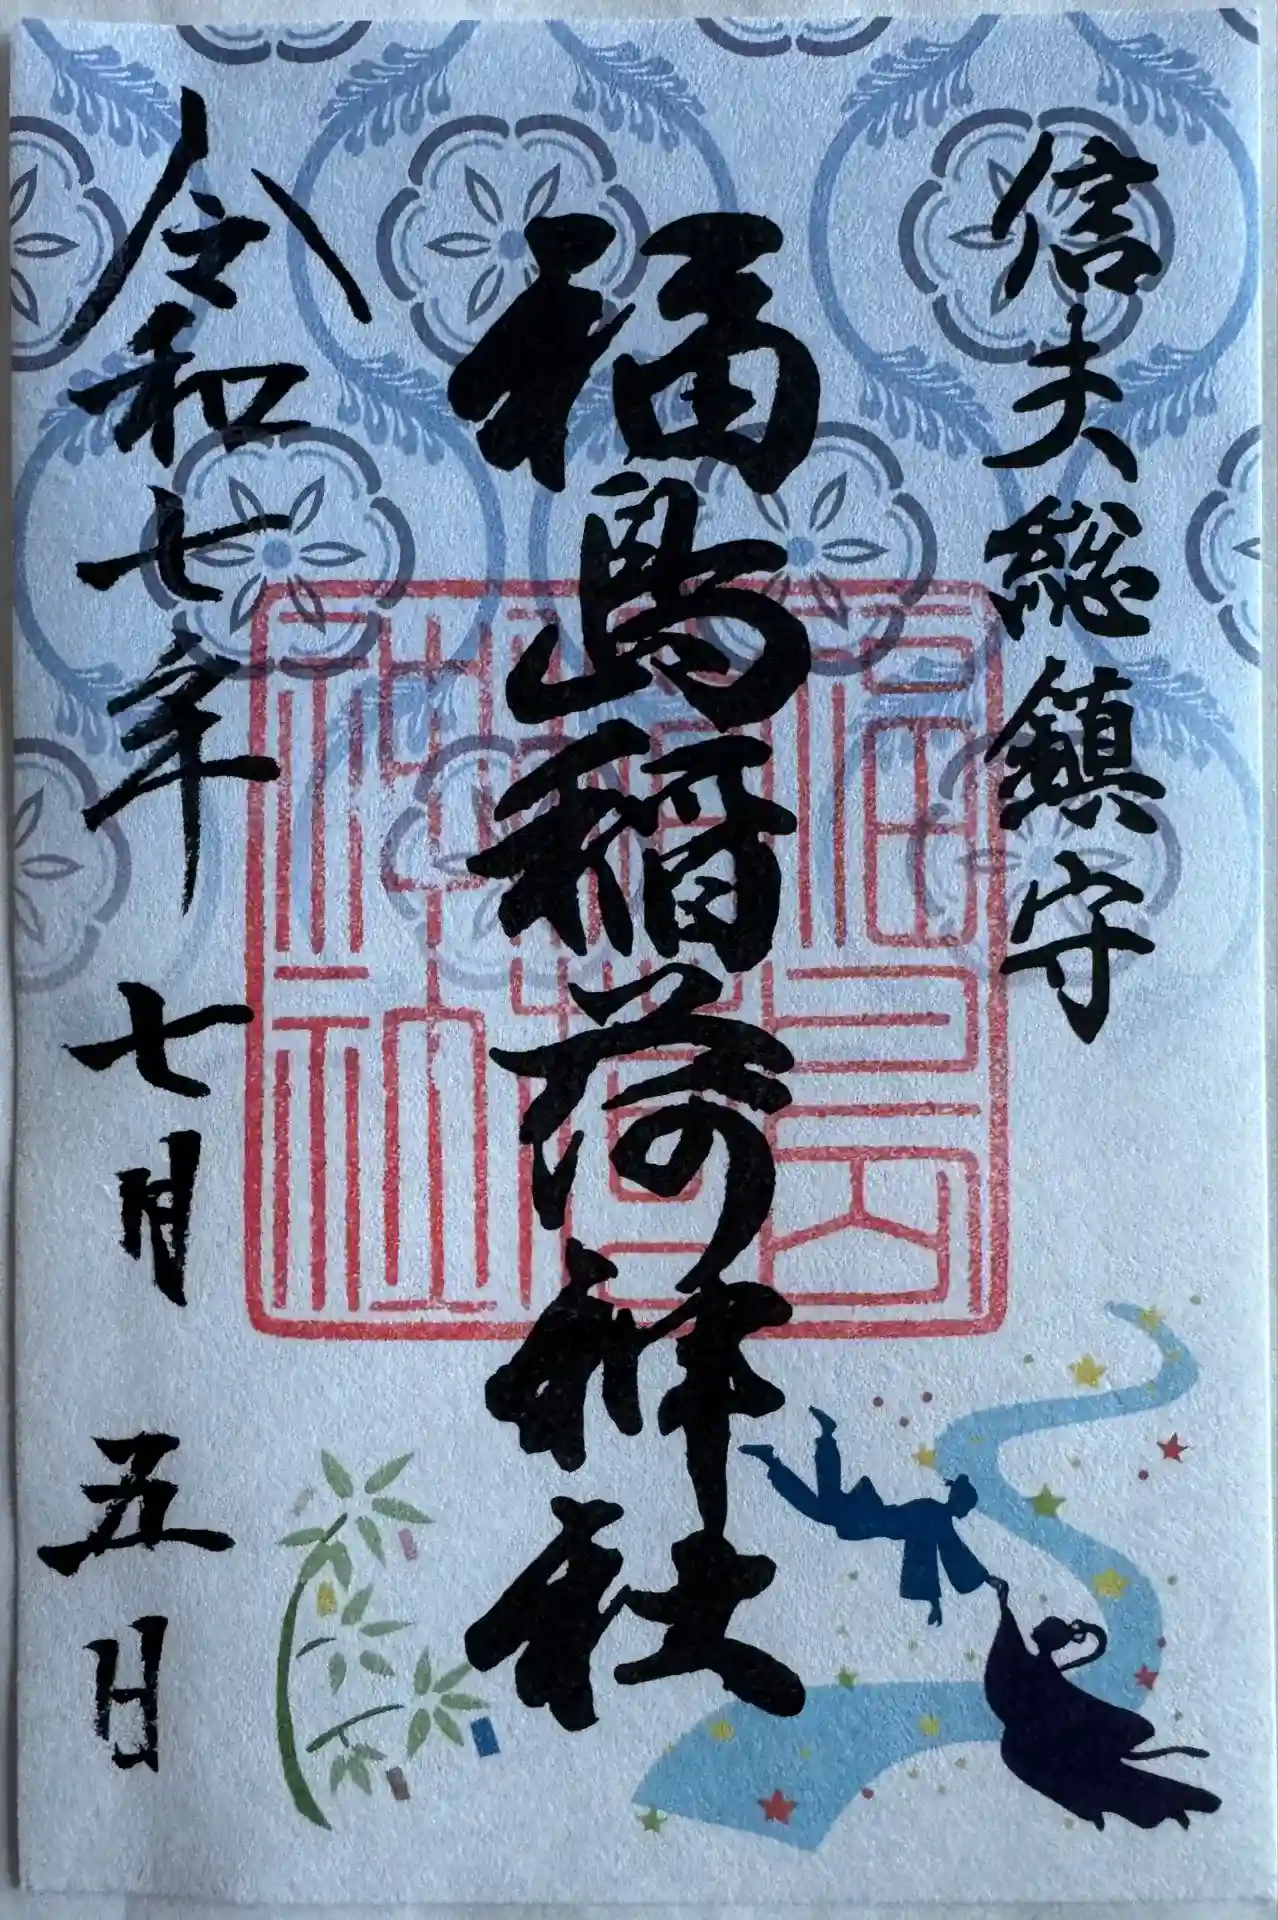 信夫総鎮守
福島稲荷神社
令和七年 七月 五日
福島
稲荷
神社